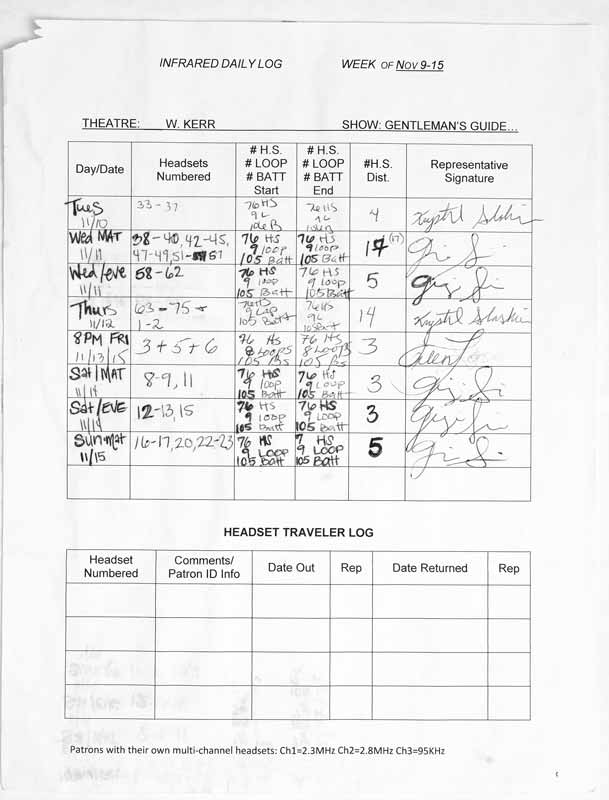 INFRARED DAILY LOG WEEK OF NOV 9-15
THEATRE: W. KERR SHOW: GENTLEMAN'S GUIDE…
Day/Date Headsets Numbered # H.S. # LOOP # BATT Start # H.S. # LOOP # BATT End #H.S. Dist. Representative Signature
Tues 11/10 33-37 76 HS 9 L 76 HS 9 L 4 Krystal
Wed MAT 11/11 38-40, 42-45, 47-49, 51-57 76 HS 9 loop 105 Batt 76 HS 9 loop 105 Batt 17 (17)
Wed/eve 11/11 58-62 76 HS 9 loop 105 Batt 76 HS 9 loop 105 Batt 5
Thurs 11/12 63-75 + 1-2 76 HS 9 Lop 105 Batt 76 HS 9L 105 Batt 14 Krystal
8PM FRI 11/13/15 3+5+6 76 HS 8 LOOPS 105 Bs 76 HS 8 LOOPS 105 Bs 3
Sat/MAT 11/14 8-9, 11 76 HS 9 loop 105 Batt 76 HS 9 loop 105 Batt 3
Sat/EVE 11/14 12-13, 15 76 HS 9 loop 105 Batt 76 HS 9 LOOP 105 Batt 3
Sun-mat 11/15 16-17, 20, 22-23 76 HS 9 LOOP 105 Batt 7 HS 9 LOOP 105 Batt 5
HEADSET TRAVELER LOG
Headset Numbered Comments/ Patron ID Info Date Out Rep Date Returned Rep
Patrons with their own multi-channel headsets: Ch1=2.3MHz Ch2=2.8MHz Ch3=95KHz